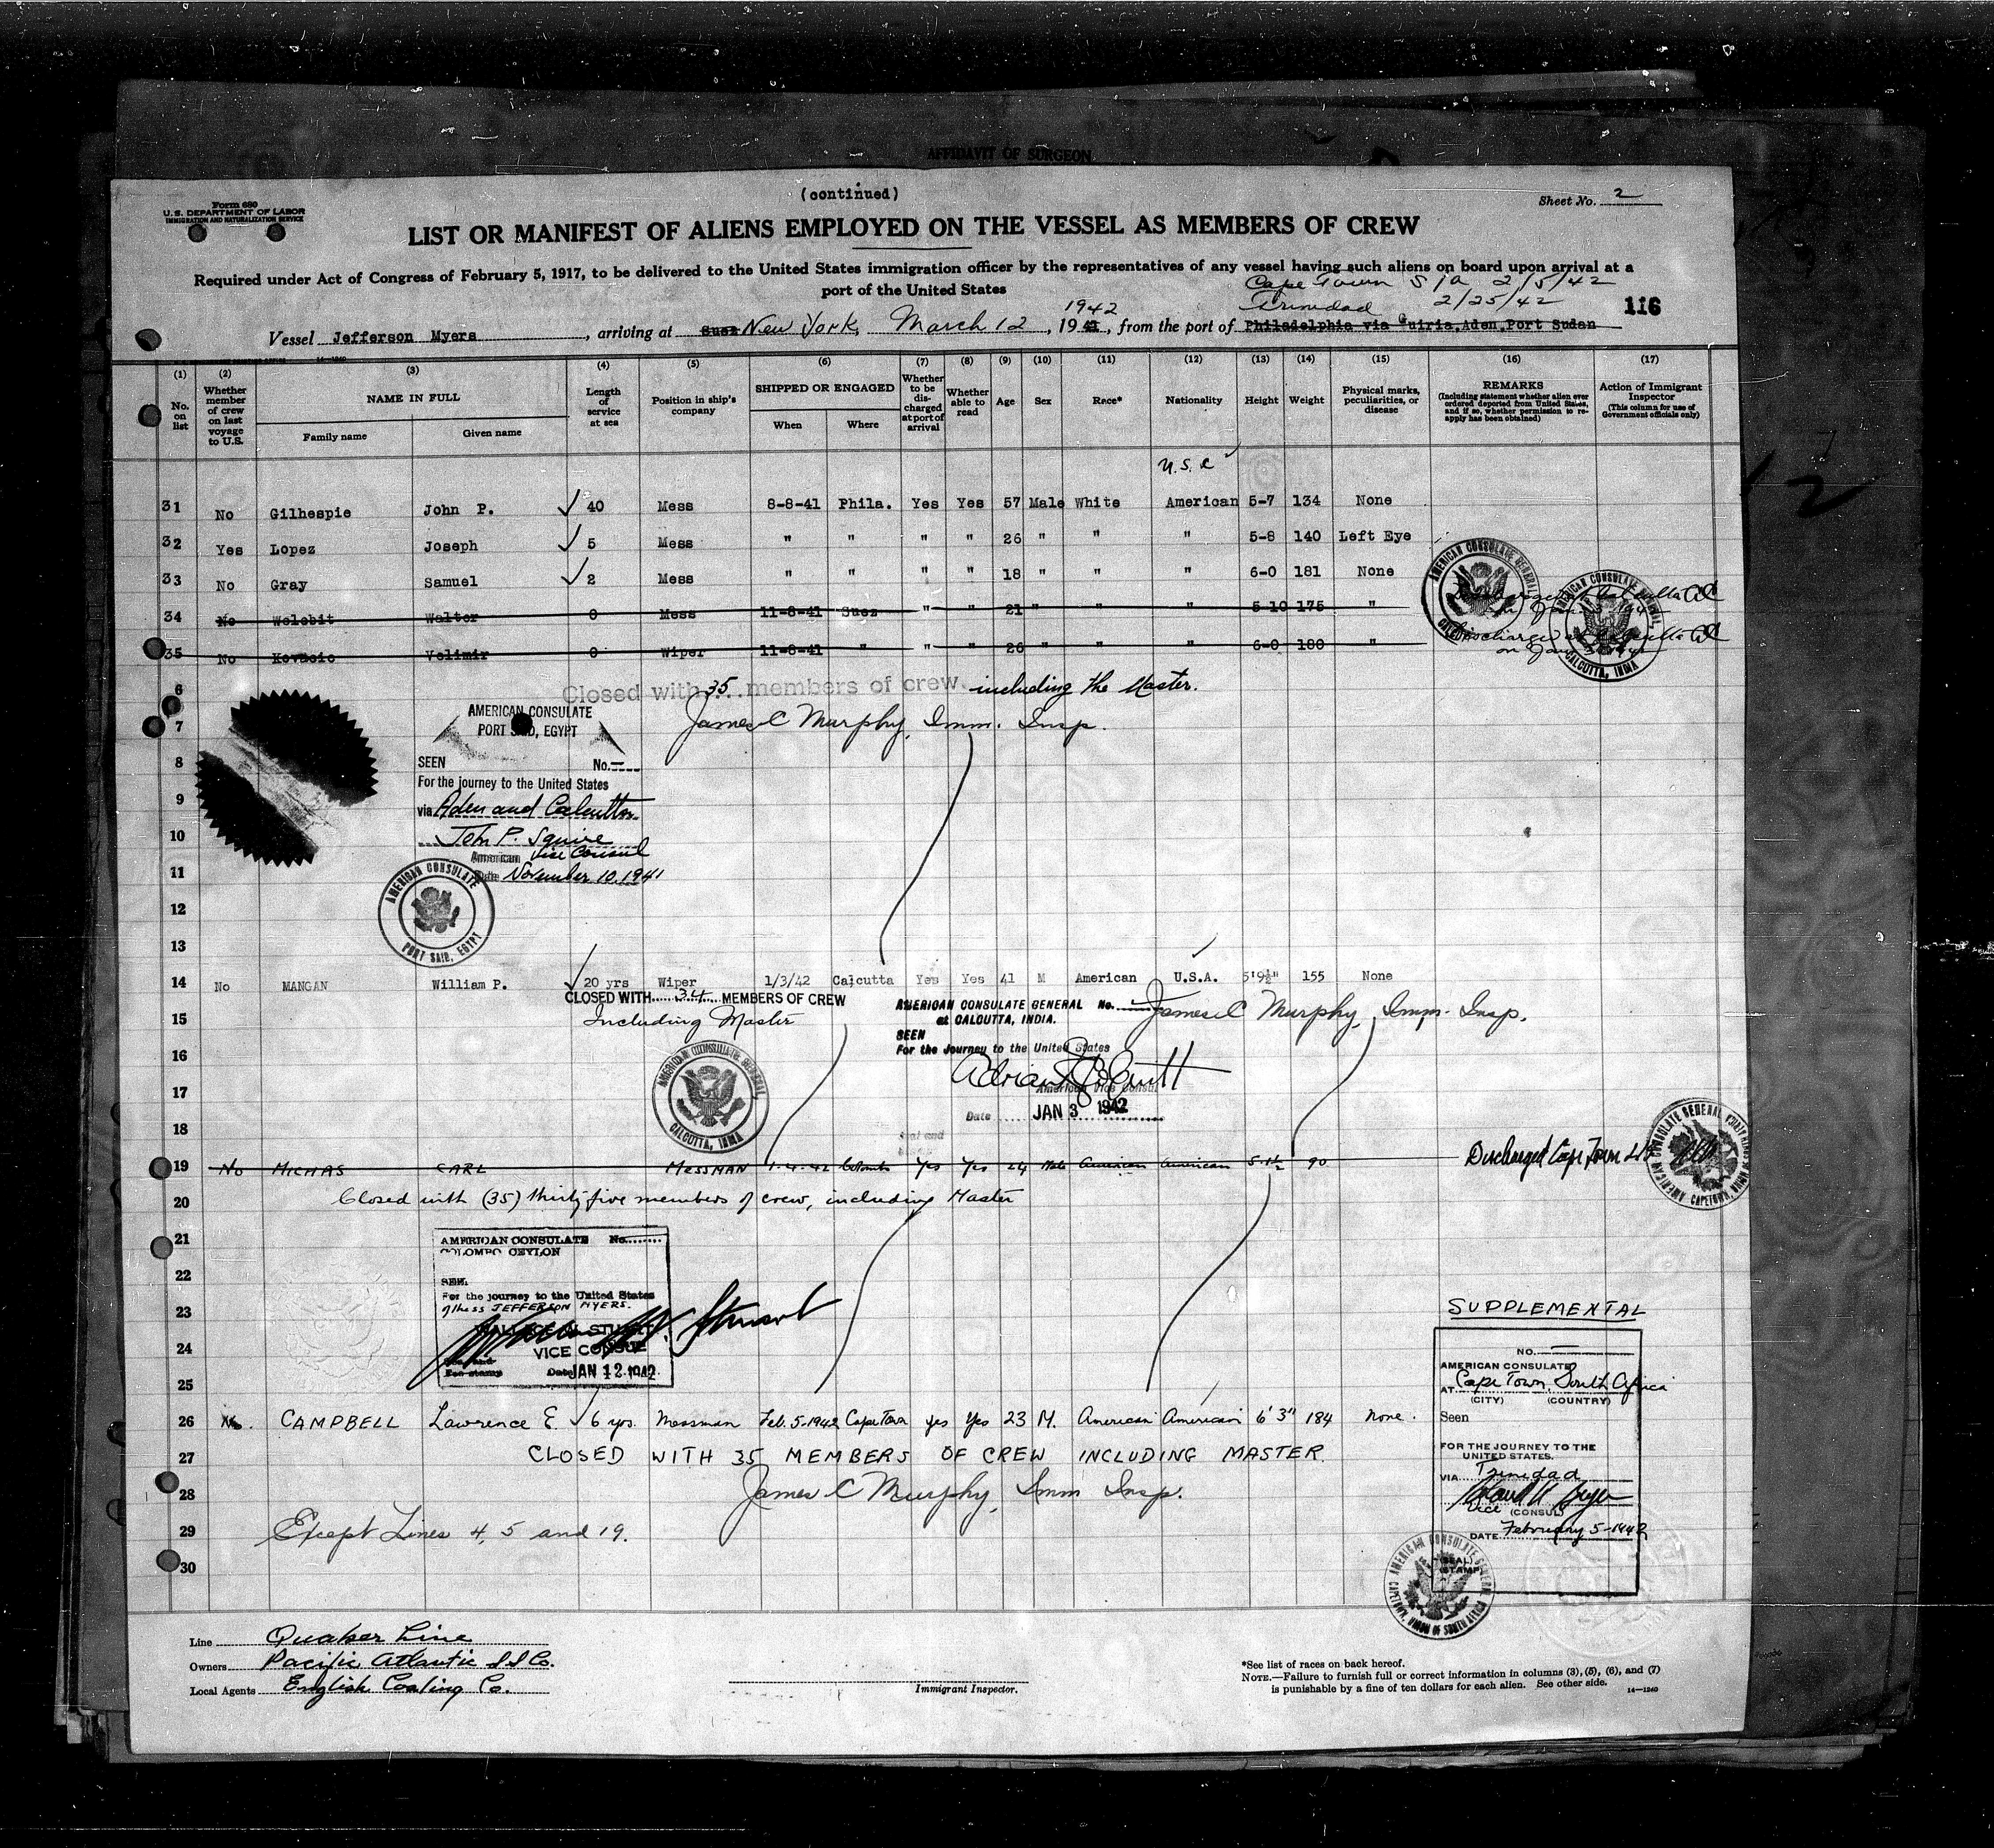 AFFIDAVIT OF SURGEON
(continued)
Form 680
U.S. DEPARTMENT OF LABOR
IMMIGRATION AND NATURALIZATION SERVICE
Sheet No. 2
LIST OR MANIFEST OF ALIENS EMPLOYED ON THE VESSEL AS MEMBERS OF CREW
Required under Act of Congress of February 5, 1917, to be delivered to the United States immigration officer by the representatives of any vessel having such aliens on board upon arrival at a
port of the United States
Cape Town S/A 2/5/42
Trinidad 2/25/42
116
1942
Vessel Jefferson Myers, arriving at Suez New York, March 12, 1941, from the port of Philadelphia via Guiria, Aden, Port Sudan
(1) (2) (3) (4) (5) (6) (7) (8) (9) (10) (11) (12) (13) (14) (15) (16) (17)
No. on list
Whether member of crew on last voyage to U.S.
NAME IN FULL
Family name
Given name
Length of service at sea
Position in ship's company
SHIPPED OR ENGAGED
When
Where
Whether to be discharged at port of arrival
Whether able to read
Age
Sex
Race*
Nationality
Height
Weight
Physical marks, peculiarities, or disease
REMARKS
(Including statement whether alien ever ordered deported from United States, and if so, whether permission to reapply has been obtained)
Action of Immigrant Inspector
(This column for use of Government officials only)
U.S.C
31 No Gilhespie John P. 40 Mess 8-8-41 Phila. Yes Yes 57 Male White American 5-7 134 None
32 Yes Lopez Joseph 5 Mess " " " " 26 " " " 5-8 140 Left Eye
33 No Gray Samuel 2 Mess " " " " 18 " " " 6-0 181 None
34 No Welebit Walter 0 Mess 11-8-41 Suez " " 21 " " " 5-10 175 " Discharged at Calcutta
35 No Kovacic Velimir 0 Wiper 11-8-41 " " " 26 " " " 6-0 180 " Discharged at Calcutta
AMERICAN CONSULATE GENERAL CALCUTTA, INDIA
AMERICAN CONSULATE GENERAL CALCUTTA, INDIA
6 Closed with 35 members of crew. including the Master.
7 James C Murphy, Imm. Insp.
AMERICAN CONSULATE
PORT SAID, EGYPT
8 SEEN No.
For the journey to the United States
9 via Aden and Calcutta
10 John P. Squire
American Vice Consul
11 Date November 10, 1941
12
AMERICAN CONSULATE PORT SAID, EGYPT
13
14 No MANGAN William P. 20 yrs Wiper 1/3/42 Calcutta Yes Yes 41 M American U.S.A. 5'9½" 155 None
CLOSED WITH 34 MEMBERS OF CREW
15 Including Master
AMERICAN CONSULATE GENERAL No.
at CALCUTTA, INDIA.
James C Murphy, Imm. Insp.
SEEN
16 For the Journey to the United States
17 American Vice Consul
Date JAN 3 1942
AMERICAN CONSULATE GENERAL CALCUTTA, INDIA
18 Seal and
19 No MICHAS CARL MESSMAN 1-4-42 Colombo Yes Yes 24 Male American American 5-1½ 90 Discharged Cape Town
AMERICAN CONSULATE GENERAL CAPETOWN, UNION OF SOUTH AFRICA
20 Closed with (35) thirty five members of crew, including Master
21 AMERICAN CONSULATE No.
COLOMBO CEYLON
22 SEEN
For the journey to the United States
23 of the ss JEFFERSON MYERS.
24 VICE CONSUL
Date JAN 12 1942
25
SUPPLEMENTAL
NO.
AMERICAN CONSULATE
AT Cape Town, South Africa
(CITY) (COUNTRY)
26 CAMPBELL Lawrence E 6 yrs. Messman Feb. 5-1942 Cape Town yes Yes 23 M. American American 6' 3" 184 None.
Seen
27 CLOSED WITH 35 MEMBERS OF CREW INCLUDING MASTER.
FOR THE JOURNEY TO THE
UNITED STATES.
VIA Trinidad
28 James C Murphy, Imm Insp.
Vice (CONSUL)
29 Except Lines 4, 5 and 19.
DATE February 5-1942
30
(SEAL)
(STAMP)
AMERICAN CONSULATE GENERAL CAPETOWN, UNION OF SOUTH AFRICA
Line Quaker Line
Owners Pacific Atlantic S S Co.
Local Agents English Coaling Co.
Immigrant Inspector.
*See list of races on back hereof.
NOTE.—Failure to furnish full or correct information in columns (3), (5), (6), and (7)
is punishable by a fine of ten dollars for each alien. See other side.
14—1240